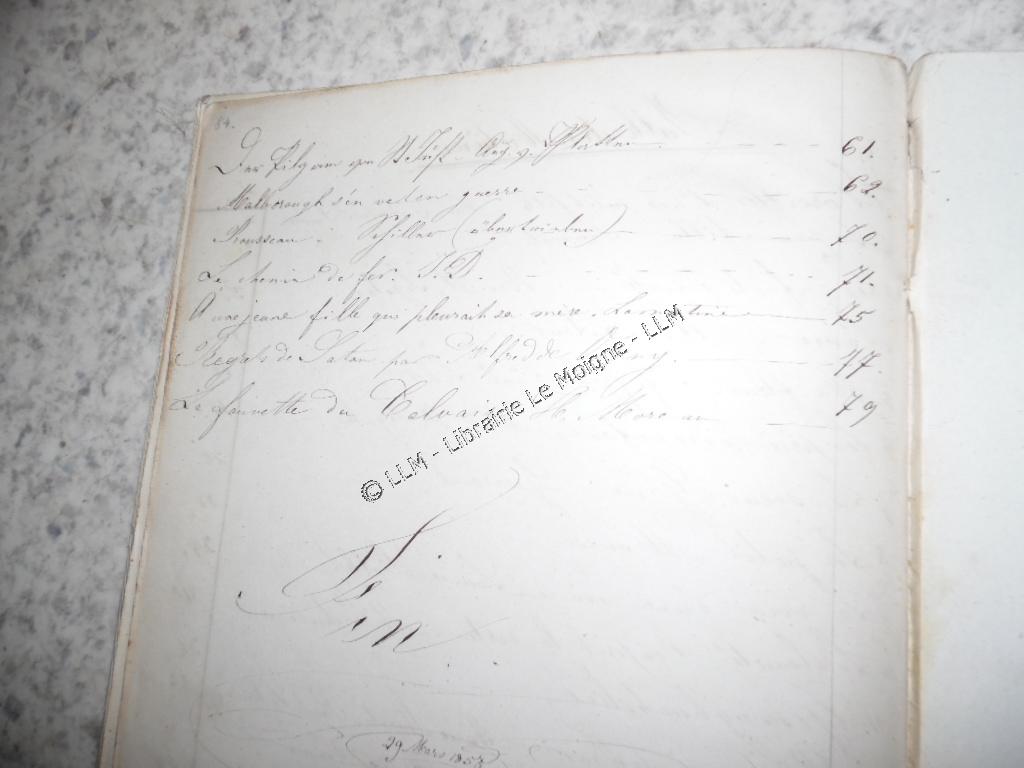 84.
Der Pilgram von St Just. Aug. v. Platten. 61.
Malborough s'en va t en guerre 62
Rousseau. Schiller 70.
Le chemin de fer. J.D. 71.
A une jeune fille qui pleurait sa mère. Lamartine 75
Regrets de Satan par Alfred de Vigny. 77.
La fauvette du Calvaire H. Moreau 79
© LLM - Librairie Le Moigne - LLM
Fin
29 Mars